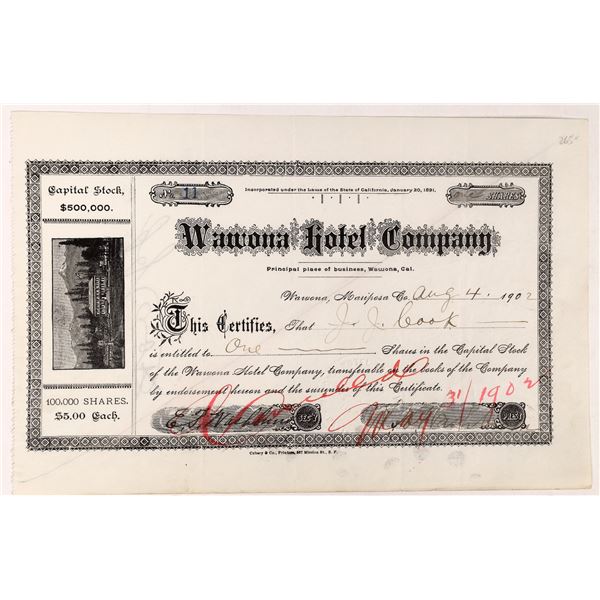 265-
Capital Stock,
$500,000.
100,000 SHARES.
$5.00 Each.
No 11
Incorporated under the Laws of the State of California, January 20, 1891.
SHARES
Wawona Hotel Company
Principal place of business, Wawona, Cal.
Wawona, Mariposa Co. Aug 4. 1902
This Certifies, That J. J. Cook
is entitled to One Shares in the Capital Stock
of the Wawona Hotel Company, transferable on the books of the Company
by endorsement hereon and the surrender of this Certificate.
Cancelled
31/1902
SEC'Y
PRES'T
Cubery & Co., Printers, 587 Mission St., S. F.